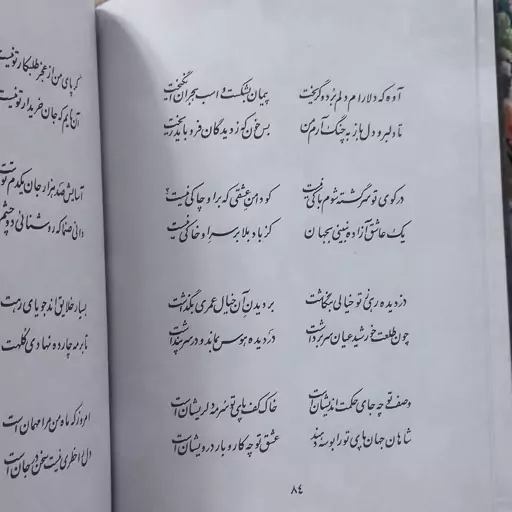 آوه که دلارام دلم برد و گریخت پیمان بشکست و اسب هجران انگیخت
تا دلبر و دل باز به چنگ آرم من بس خون که ز دیدگان فرو باید ریخت
در کوی تو سرگشته شوم باکی نیست کو دامن عشقی که بر او چاکی نیست؟
یک عاشق آزاده نبینی بجهان کز باد بلا بر سر او خاکی نیست
دزدیده رهی تو خیالی بگماشت بر دیدن آن خیال عمری بگذاشت
چون طلعت خورشید عیان سر برداشت در دیده هوس بماند و در سر پنداشت
وصف تو چه جای حکمت اندیشان است خاک کف پای تو سر مه دل ریشان است
شاهان جهان پای تو را بوسه دهند عشق تو چه کار و بار درویشان است
۸۴
گر پای من از عجز طلبکار تو نیست
آن نایم که جان خریدار تو نیست
آسایش صد هزار جان یکدم توست
بسیار خلایق اند جویای رهت
امروز که ماه من مرا مهمان است